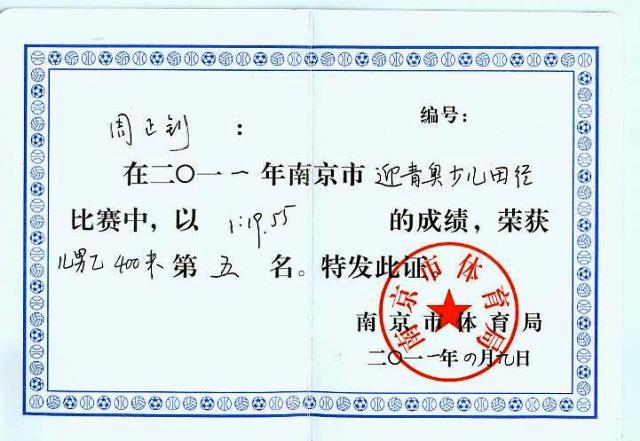 编号：
周正钊：
在二〇一一年南京市迎青奥少儿田径
比赛中，以 1:19.55 的成绩，荣获
儿男乙400米第五名。特发此证
南京市体育局
南京市体育局
二〇一一年四月九日